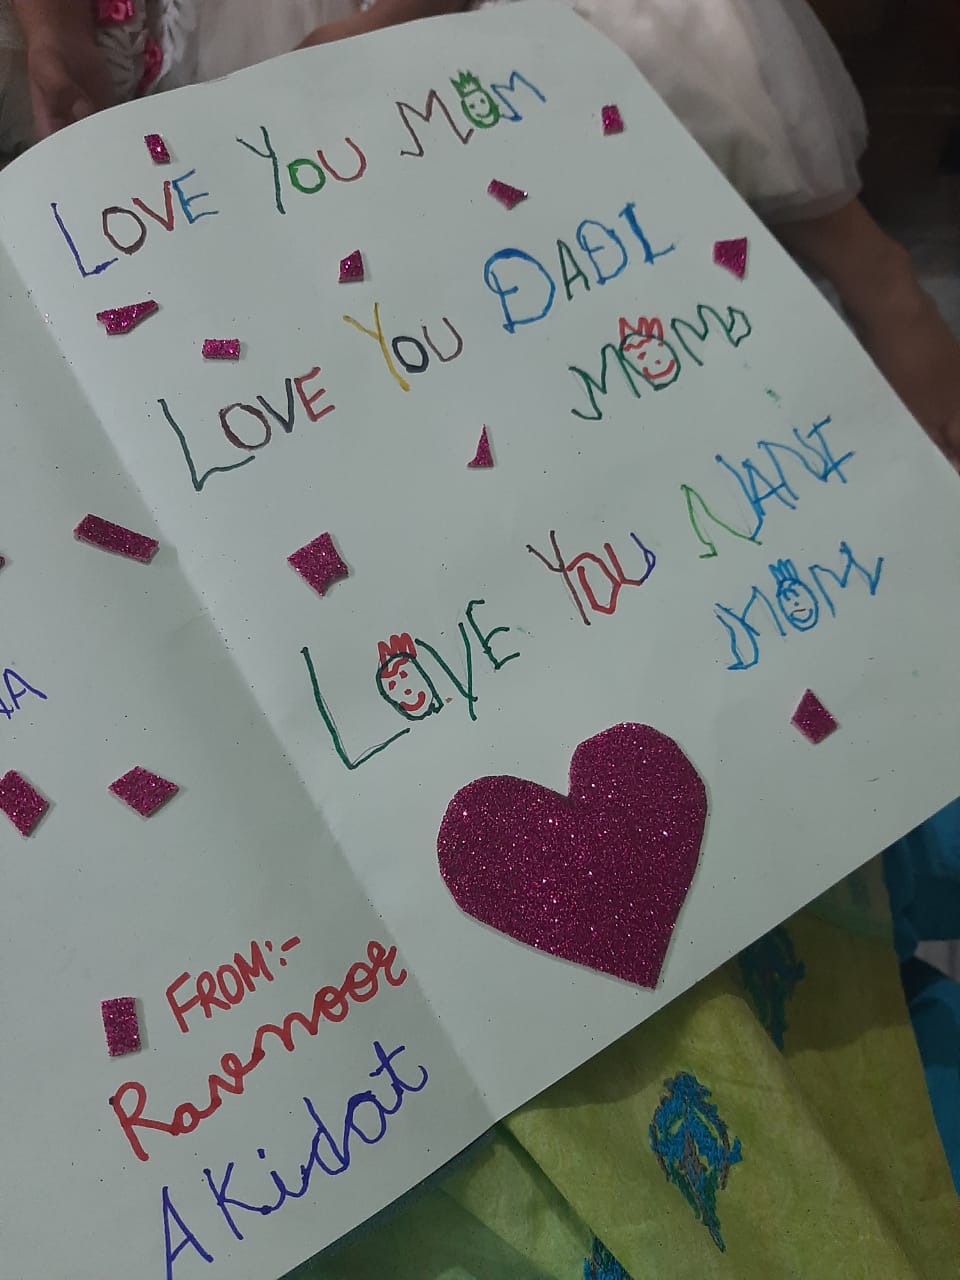 LOVE YOU MOM
LOVE YOU DADI
MOM
LOVE YOU NANI
MOM
FROM:-
Ravenoor
AKidat